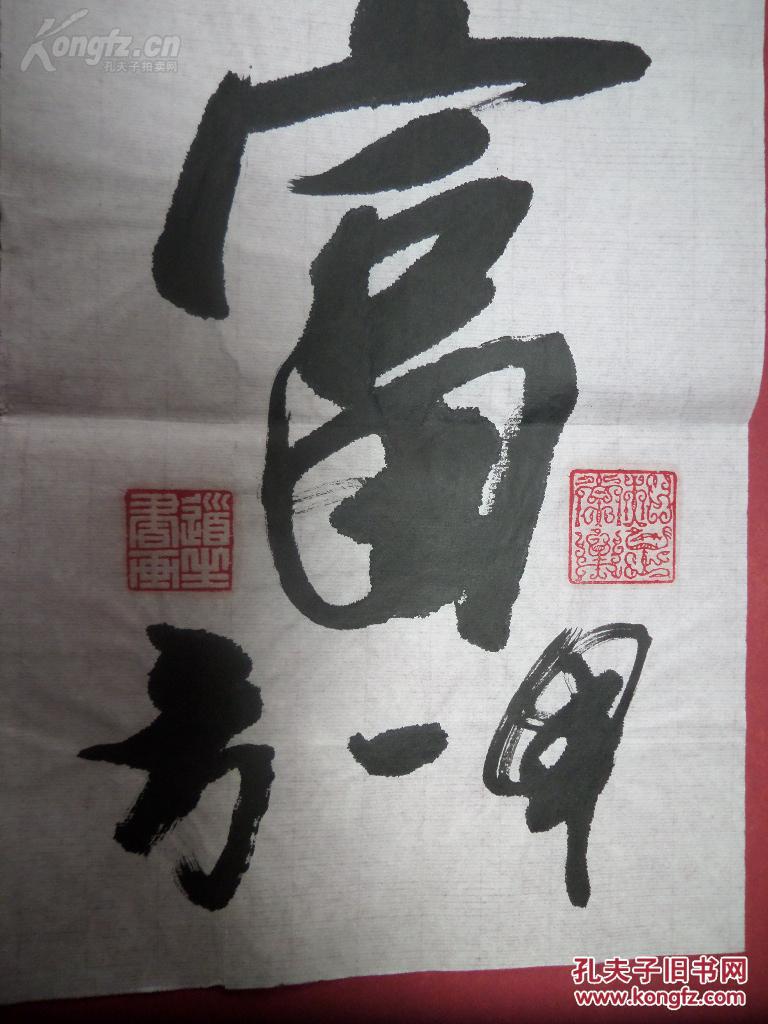 Kongfz.cn
孔夫子拍卖网
富
甲一方
道生書画
孔夫子旧书网
www.kongfz.com